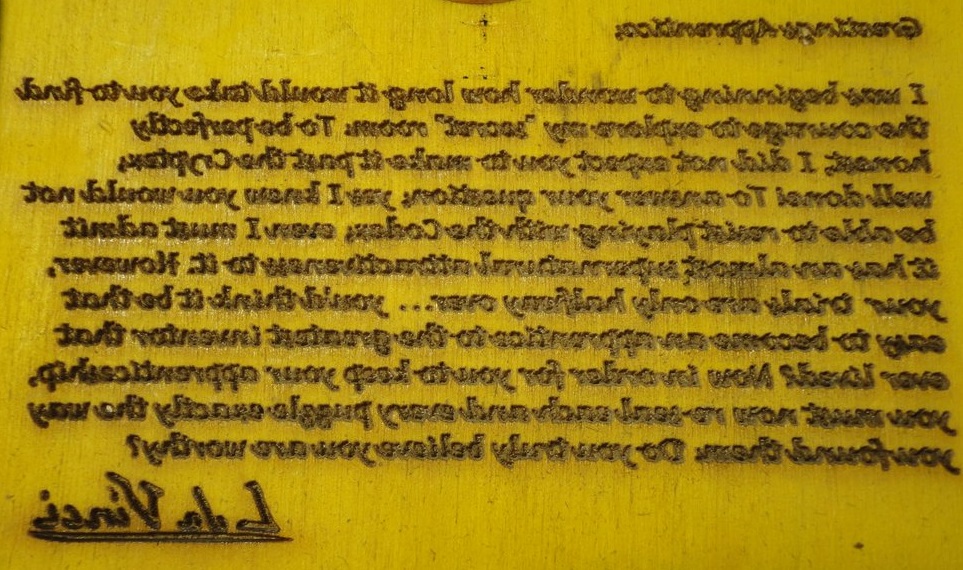 Greetings Apprentice,
I was beginning to wonder how long it would take you to find
the courage to explore my "secret" room. To be perfectly
honest, I did not expect you to make it past the Cryptex,
well done! To answer your question, yes I knew you would not
be able to resist playing with the Codex, even I must admit
it has an almost supernatural attractiveness to it. However,
your trials are only halfway over... you'd think it be that
easy to become an apprentice to the greatest inventor that
ever lived? Now in order for you to keep your apprenticeship,
you must now re-seal each and every puzzle exactly the way
you found them. Do you truly believe you are worthy?
L da Vinci